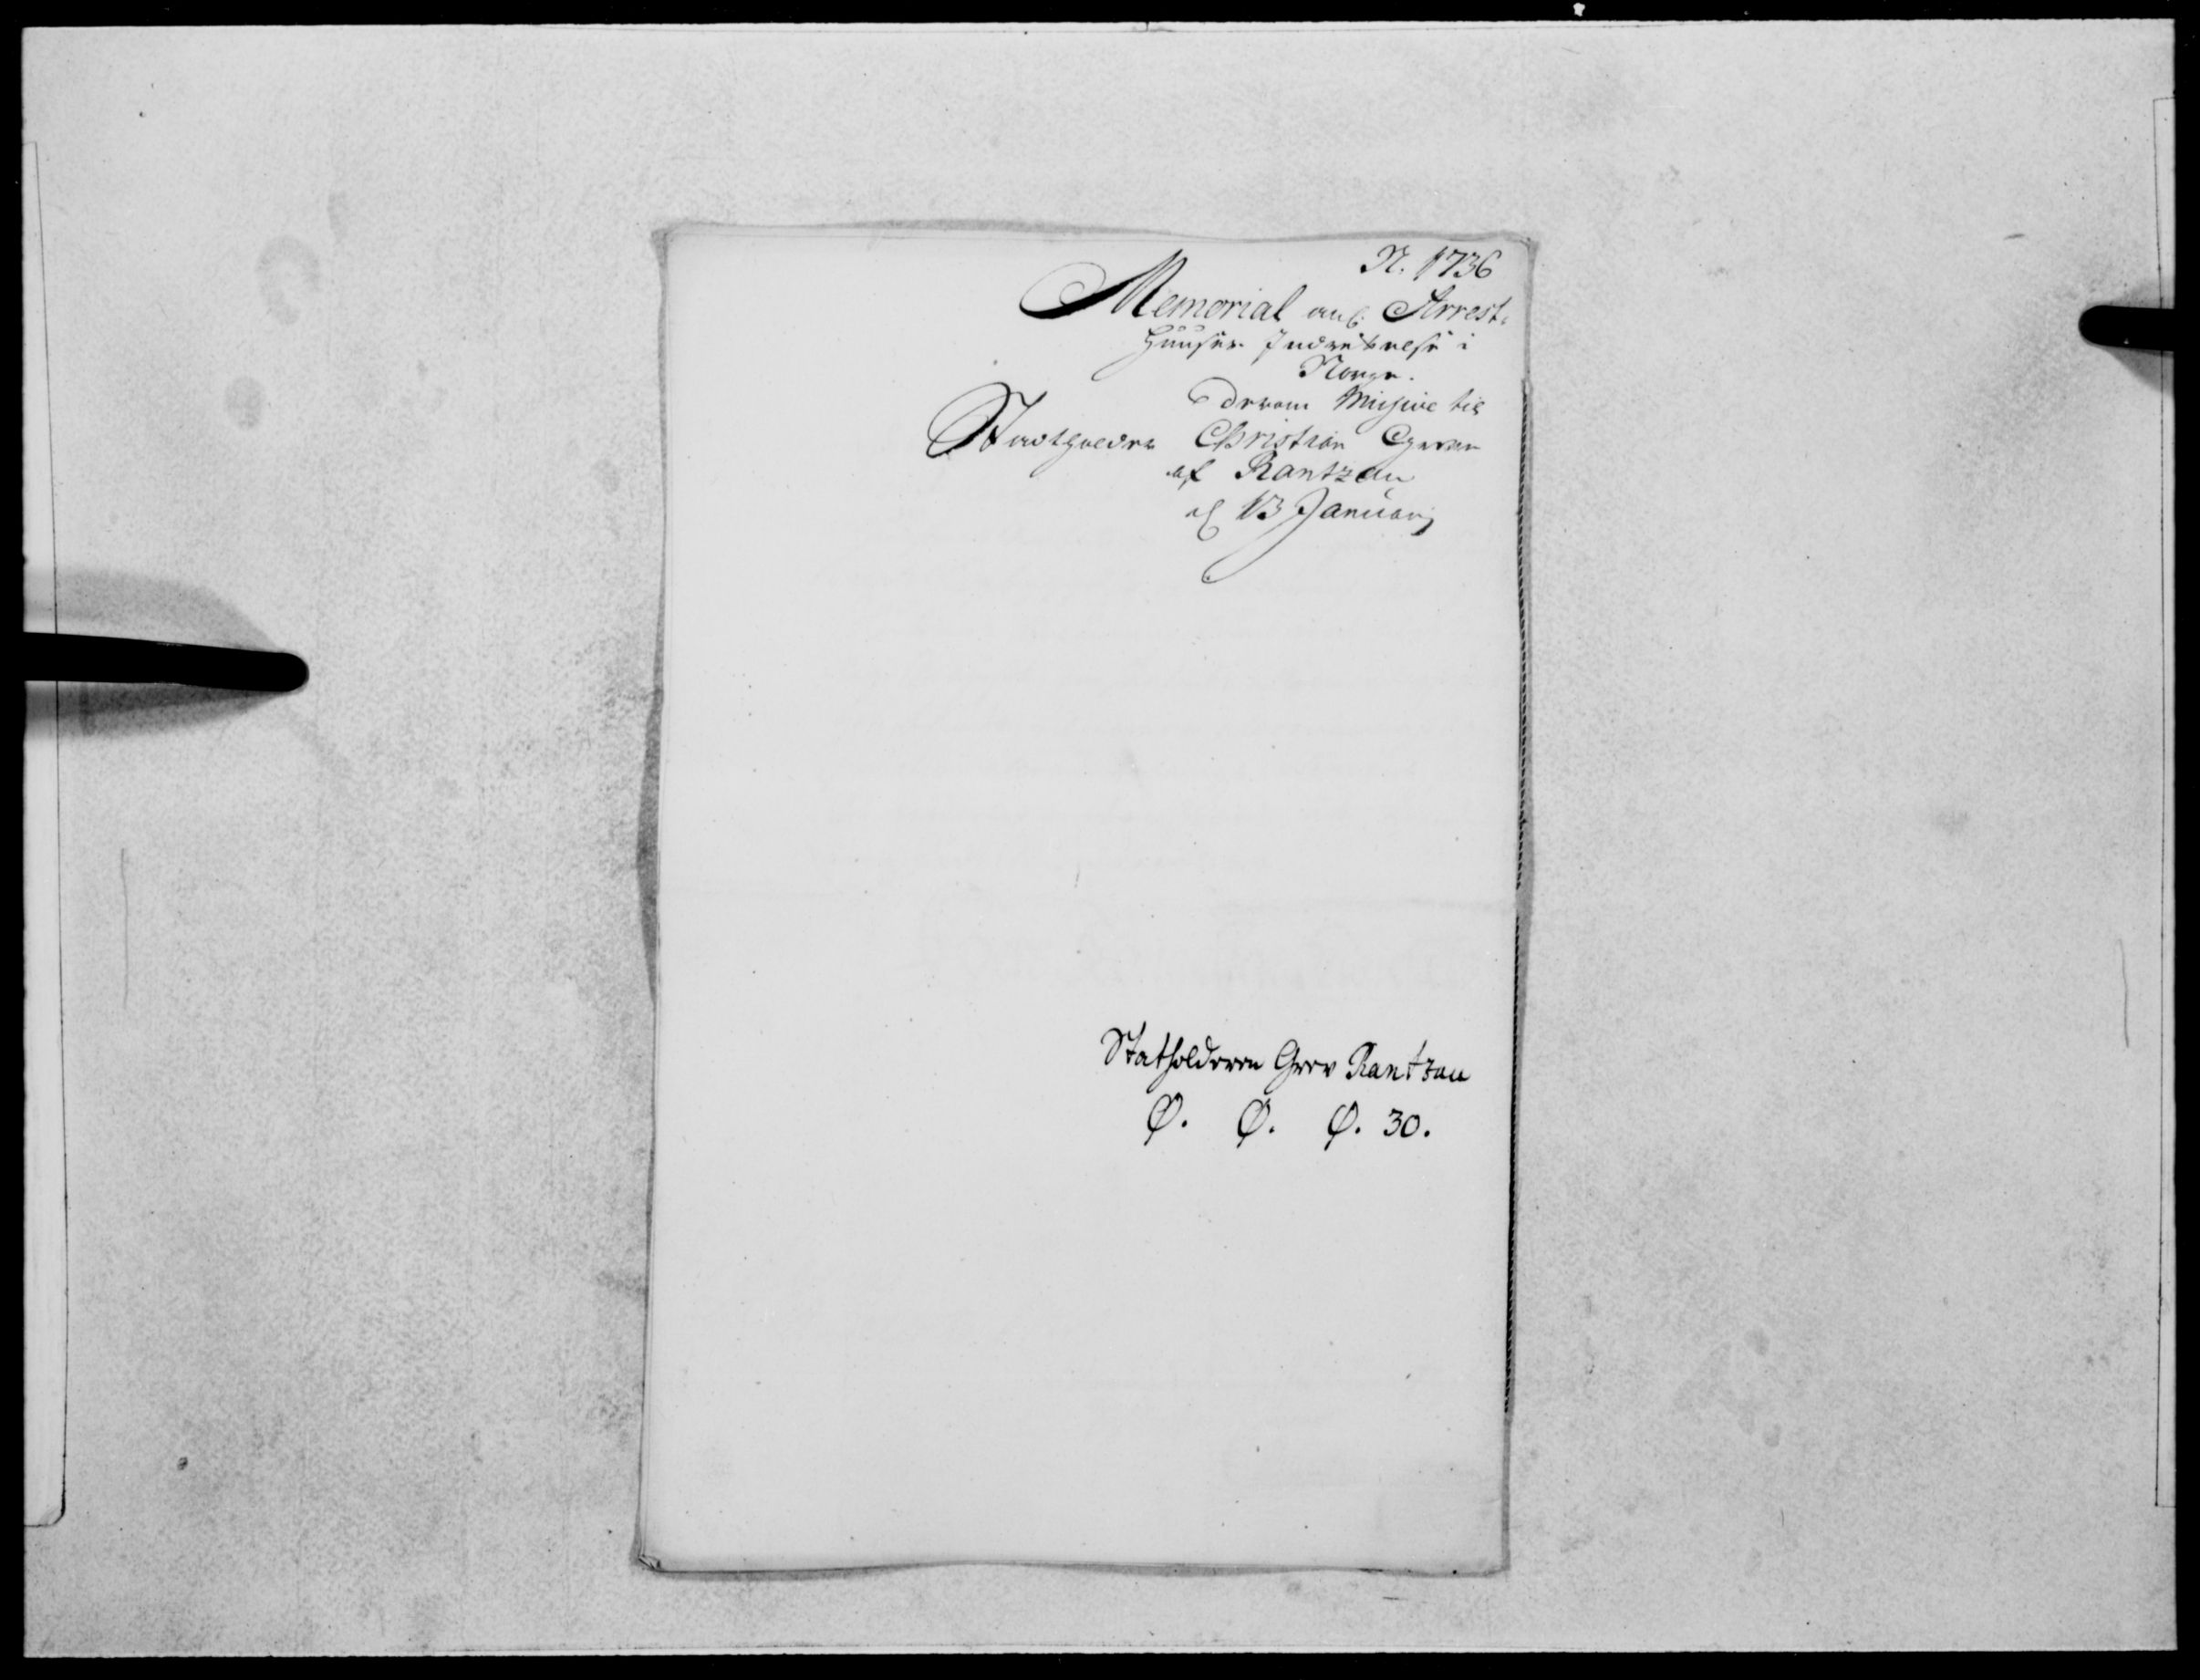 N. 1736
Memorial ang: Arrest-
Huuses Indrettelse i
Norge.
Derom Missive til
Stadtholder Christian Greve
af Rantzau
af 13 Januarij
Statholderen Grev Rantzau
Ø. Ø. Ø. 30.